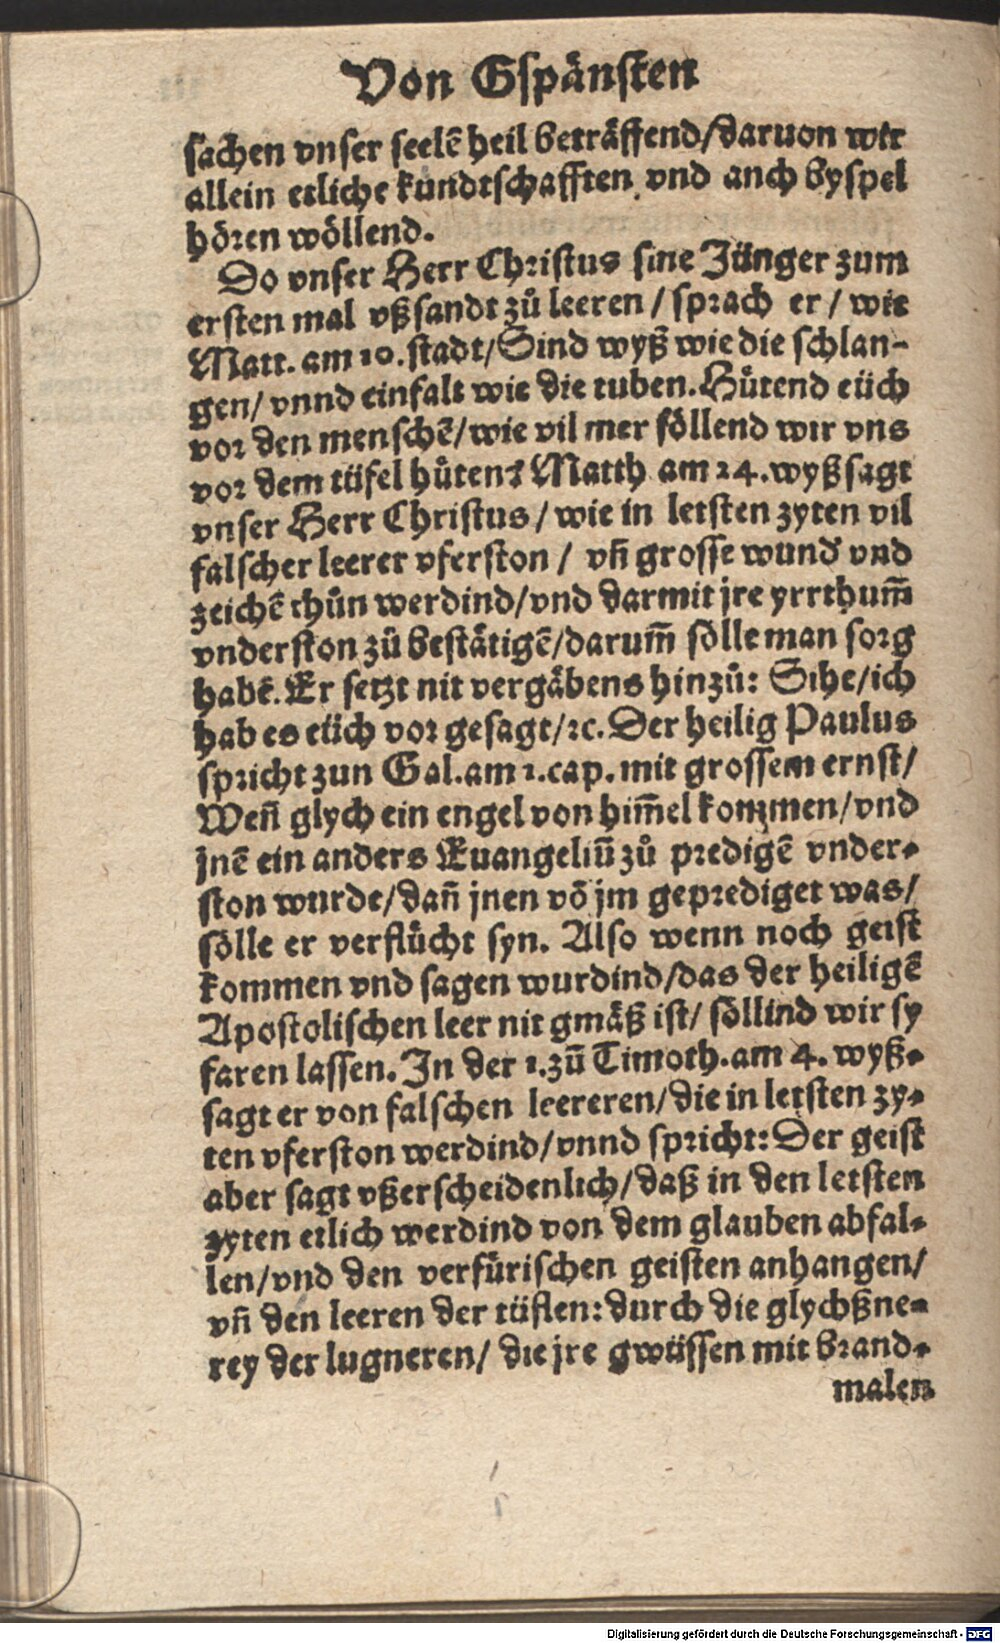 Von Gspånsten
sachen vnser seelē heil betråffend/daruon wir
allein etliche kundtschafften vnd anch byspel
hören wöllend.
Do vnser Herr Christus sine Jünger zum
ersten mal vßsandt zů leeren / sprach er / wie
Matt. am 10. stadt/Sind wyß wie die schlan-
gen/ vnnd einfalt wie die tuben. Hůtend eüch
vor den menschē/wie vil mer söllend wir vns
vor dem tüfel hůten? Matth am 24. wyßsagt
vnser Herr Christus / wie in letsten zyten vil
falscher leerer vferston / vñ grosse wund' vnd
zeichē thůn werdind/vnd darmit jre yrrthum̃
vnderston zů beståtigē/darum̃ sölle man sorg
habē. Er setzt nit vergåbens hinzů: Sihe/ich
hab es eüch vor gesagt/ꝛc. Der heilig Paulus
spricht zun Gal. am 1. cap. mit grossem ernst/
Weñ glych ein engel von him̃el kommen/vnd
jnē ein anders Euangeliū zů predigē vnder-
ston wurde/dañ jnen vō jm geprediget was/
sölle er verflůcht syn. Also wenn noch geist
kommen vnd sagen wurdind/das der heiligē
Apostolischen leer nit gmåß ist/ söllind wir sy
faren lassen. In der 1. zū Timoth. am 4. wyß-
sagt er von falschen leereren/die in letsten zy-
ten vferston werdind/vnnd spricht: Der geist
aber sagt vßerscheidenlich/daß in den letsten
zyten etlich werdind von dem glauben abfal-
len/vnd den verfůrischen geisten anhangen/
vñ den leeren der tüflen: durch die glychßne-
rey der lugneren/ die jre gwüssen mit brand-
malen
Digitalisierung gefördert durch die Deutsche Forschungsgemeinschaft - DFG